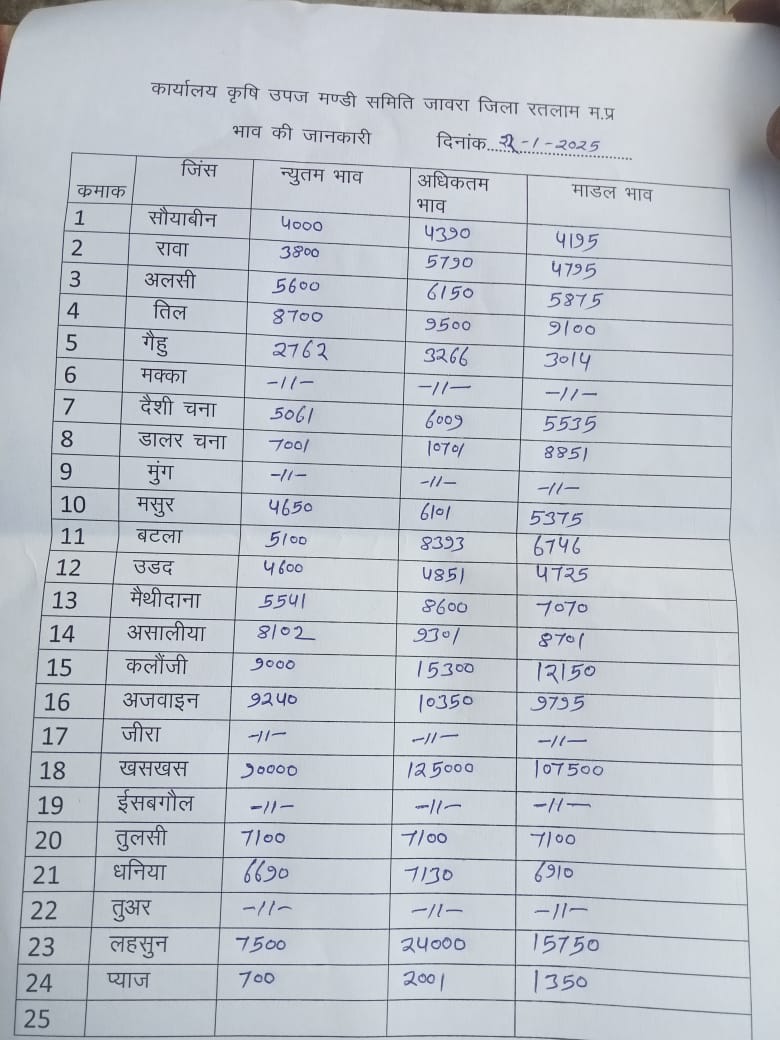 कार्यालय कृषि उपज मण्डी समिति जावरा जिला रतलाम म.प्र
भाव की जानकारी दिनांक....-1-2025
कमाक जिंस न्युतम भाव अधिकतम भाव माडल भाव
1 सौयाबीन 4000 4390 4195
2 रावा 3800 5790 4795
3 अलसी 5600 6150 5875
4 तिल 8700 9500 9100
5 गैहु 2762 3266 3014
6 मक्का -11- -11- -11-
7 दैशी चना 5061 6009 5535
8 डालर चना 7001 10701 8851
9 मुंग -11- -11- -11-
10 मसुर 4650 6101 5375
11 बटला 5100 8393 6746
12 उडद 4600 4851 4725
13 मैथीदाना 5541 8600 7070
14 असालीया 8102 9301 8701
15 कलौंजी 9000 15300 12150
16 अजवाइन 9240 10350 9795
17 जीरा -11- -11- -11-
18 खसखस 90000 125000 107500
19 ईसबगौल -11- -11- -11-
20 तुलसी 7100 7100 7100
21 धनिया 6690 7130 6910
22 तुअर -11- -11- -11-
23 लहसुन 7500 24000 15750
24 प्याज 700 2001 1350
25